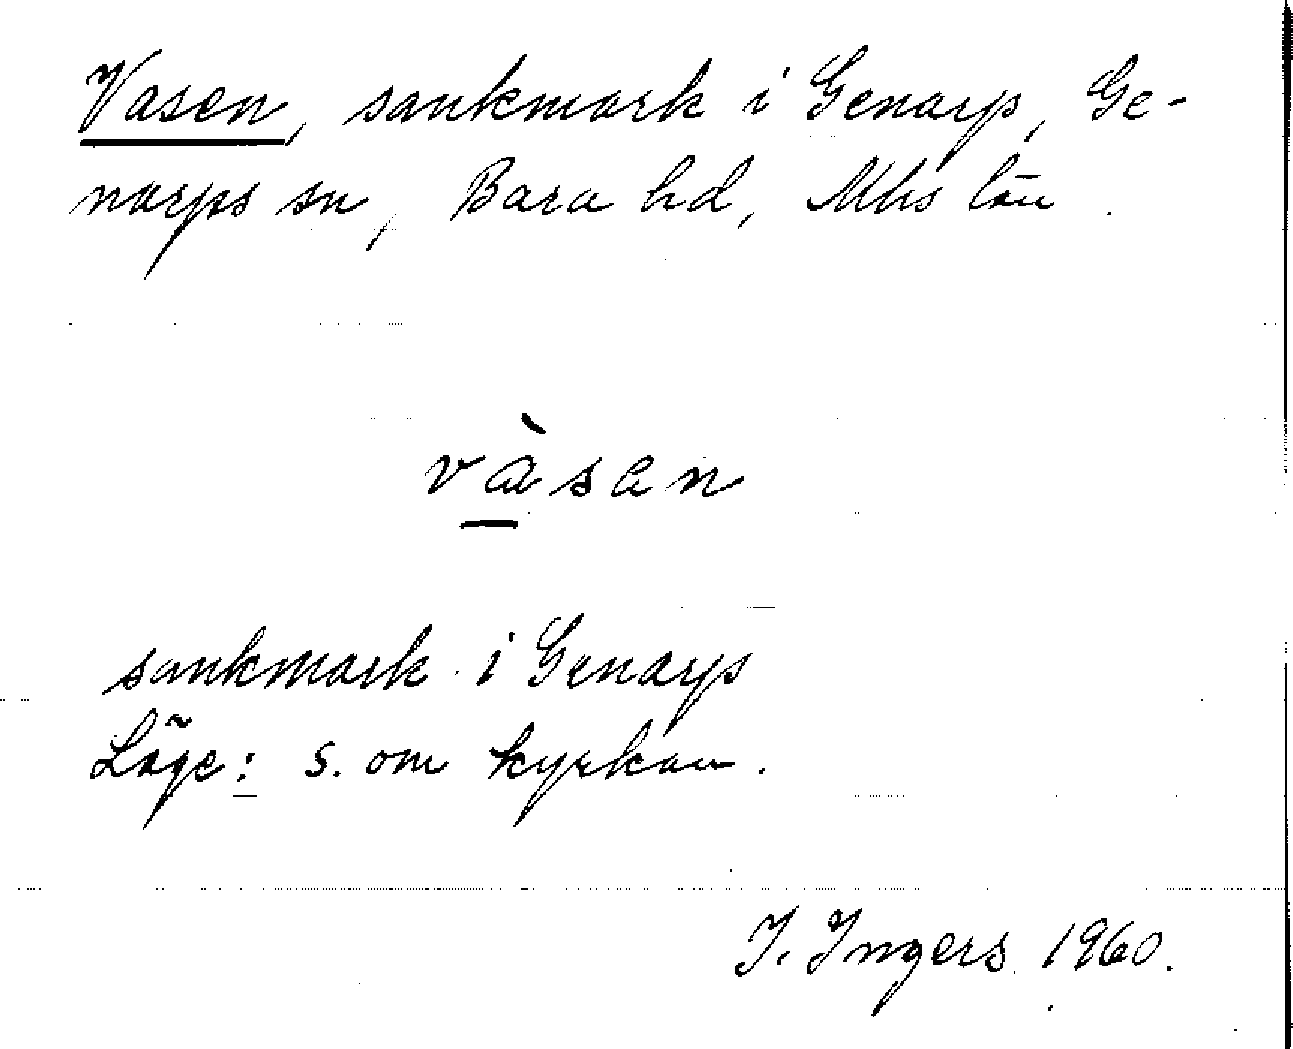 Vasen, sankmark i Genarp, Ge-
narps sn, Bara hd, Mhs län.
vàsan
sankmark i Genarps
Läge: s. om kyrkan.
I. Ingers 1960.